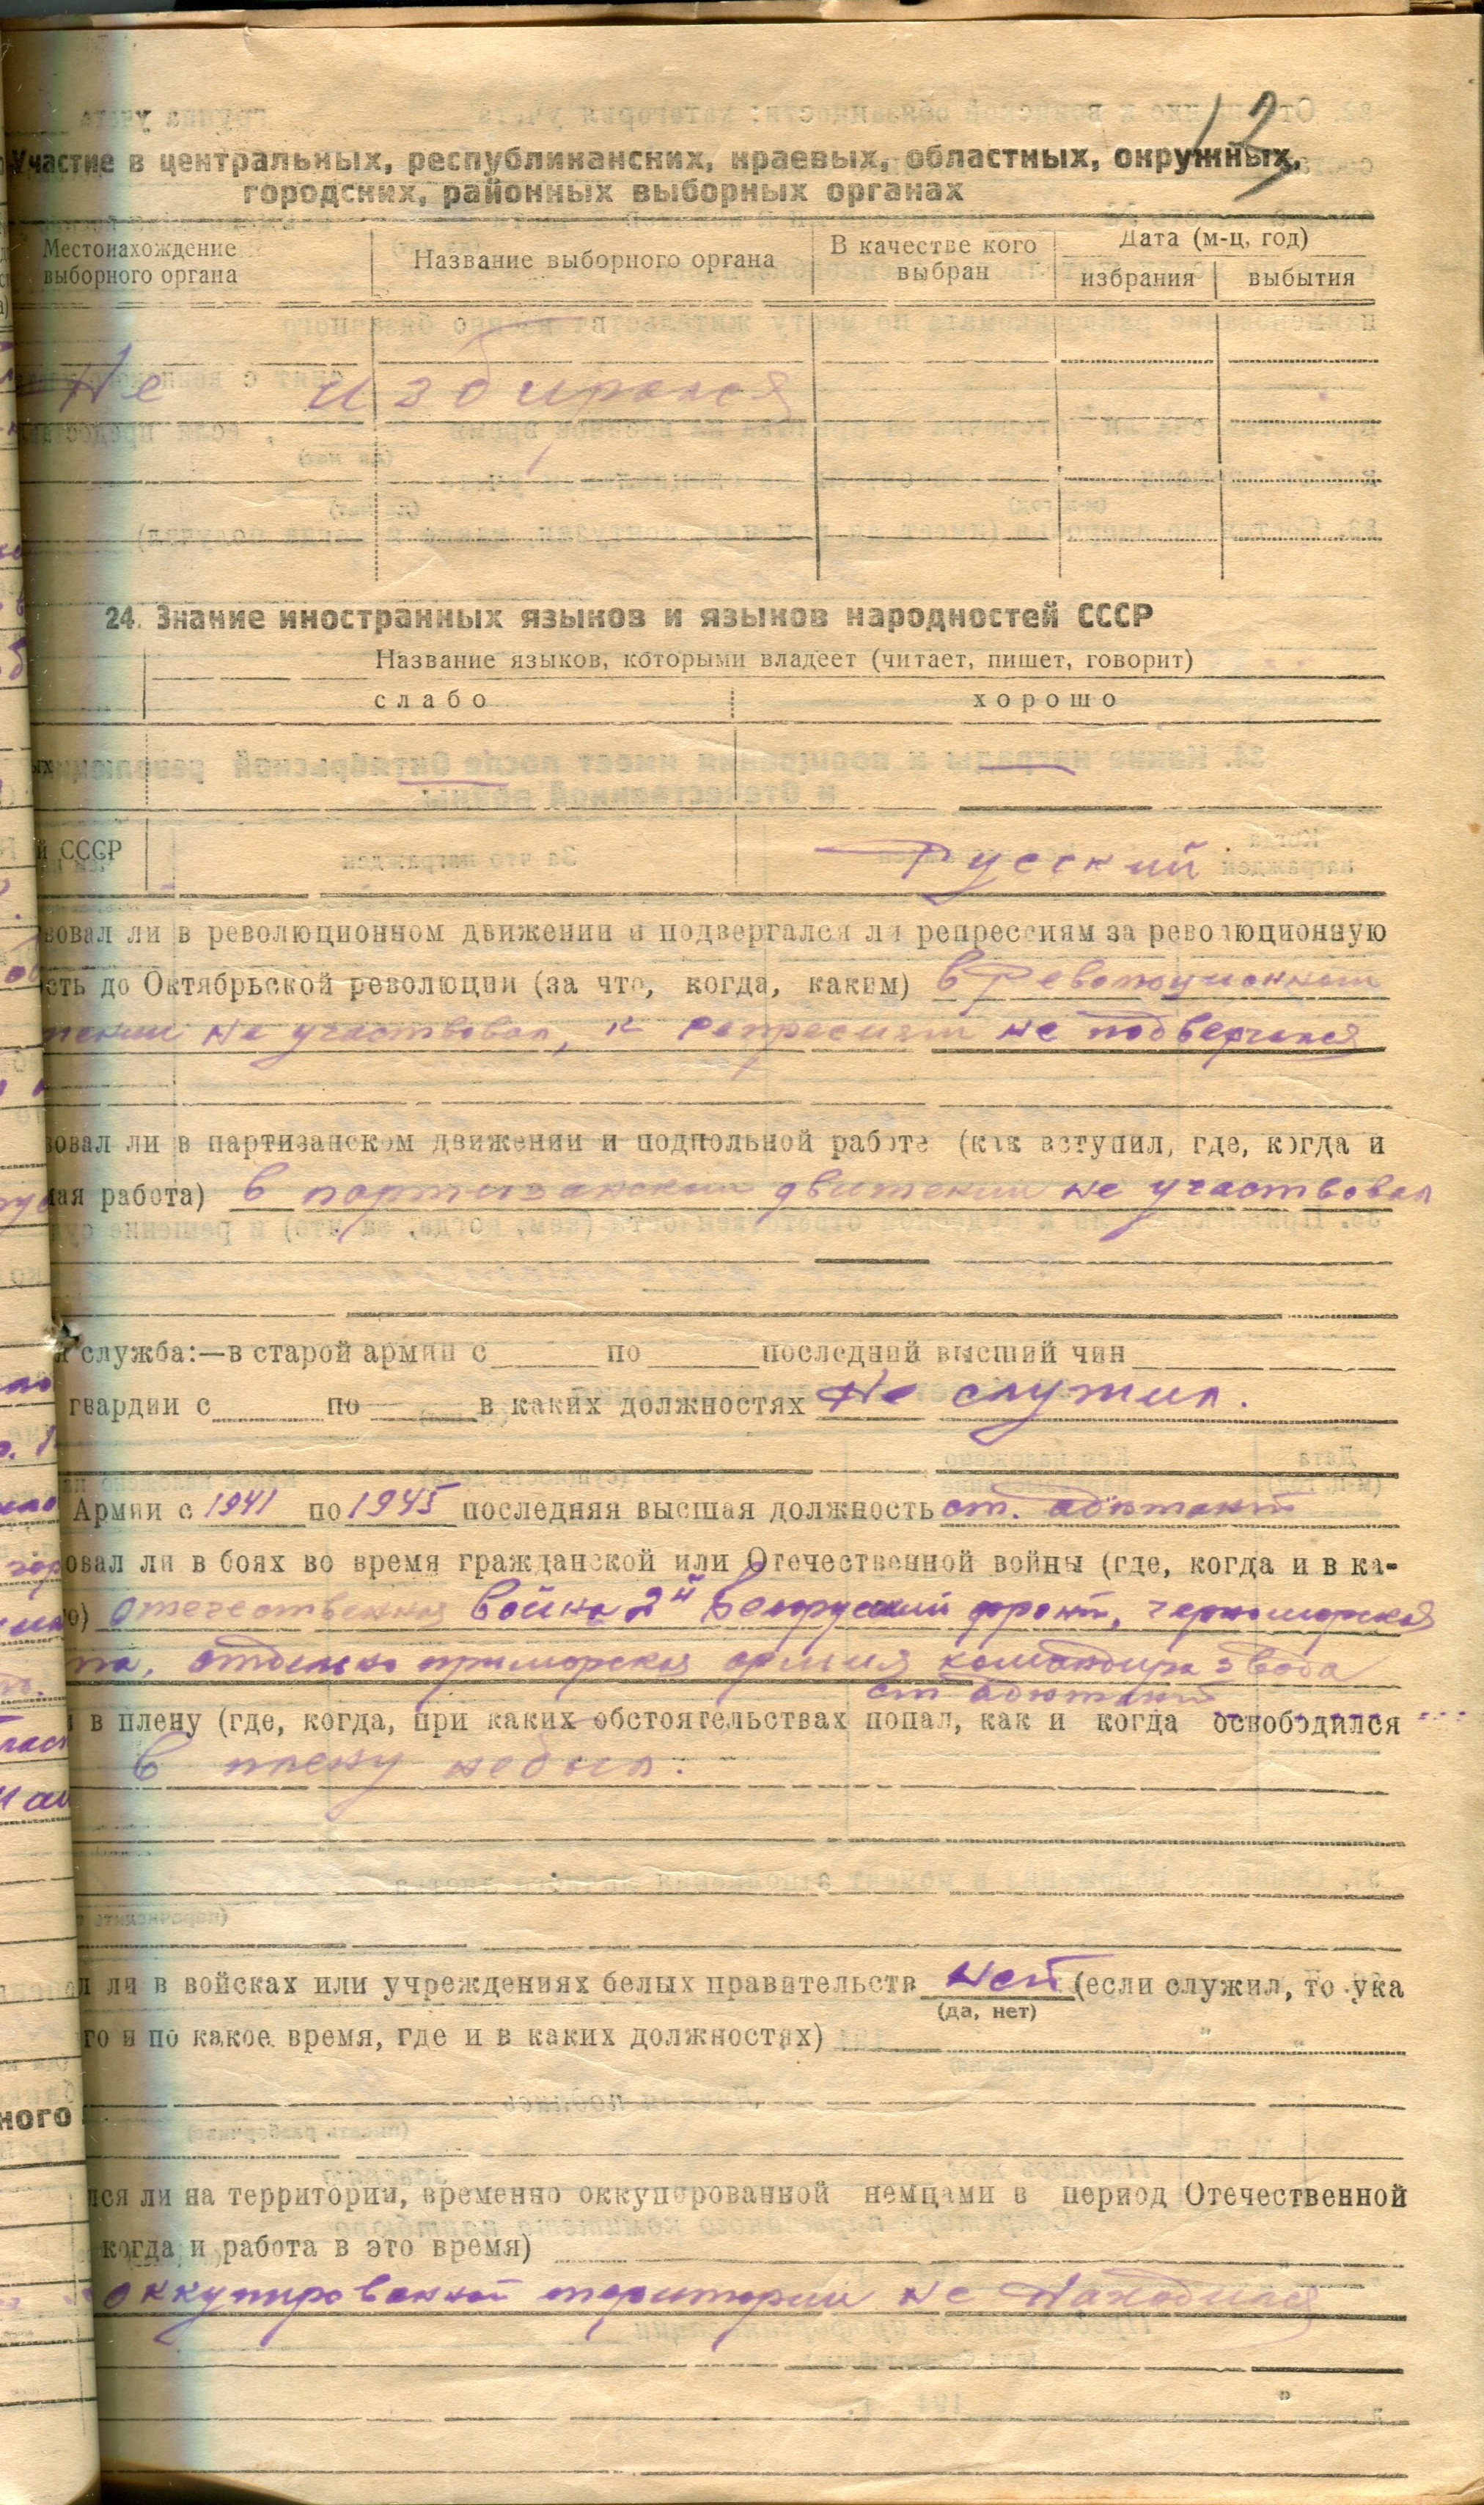 12
Участие в центральных, республиканских, краевых, областных, окружных,
городских, районных выборных органах
Местонахождение выборного органа
Название выборного органа
В качестве кого выбран
Дата (м-ц, год)
избрания
выбытия
Не избирался
24. Знание иностранных языков и языков народностей СССР
Название языков, которыми владеет (читает, пишет, говорит)
слабо хорошо
ых
й СССР Русский
вовал ли в революционном движении и подвергался ли репрессиям за революционную
сть до Октябрьской революции (за что, когда, каким) в Революционном
жении не участвовал, к репресиям не подвергался
вовал ли в партизанском движении и подпольной работе (как вступил, где, когда и
мая работа) в портизанском движении не участвовал
я служба:—в старой армии с ____ по ____ последний высший чин
гвардии с ____ по ____ в каких должностях Не служил.
Армии с 1941 по 1945 последняя высшая должность ст. адютант
овал ли в боях во время гражданской или Отечественной войны (где, когда и в ка-
о) Отечественная война 2й Белоруский фронт, черноморская
па, отдельно приморская армия командира звода
ст адютант
в плену (где, когда, при каких обстоятельствах попал, как и когда освободился
в плену небыл.
л ли в войсках или учреждениях белых правительств нет (если служил, то ука
(да, нет)
го и по какое время, где и в каких должностях)
ного
лся ли на территории, временно оккупированной немцами в период Отечественной
когда и работа в это время)
оккупированной територии не находился